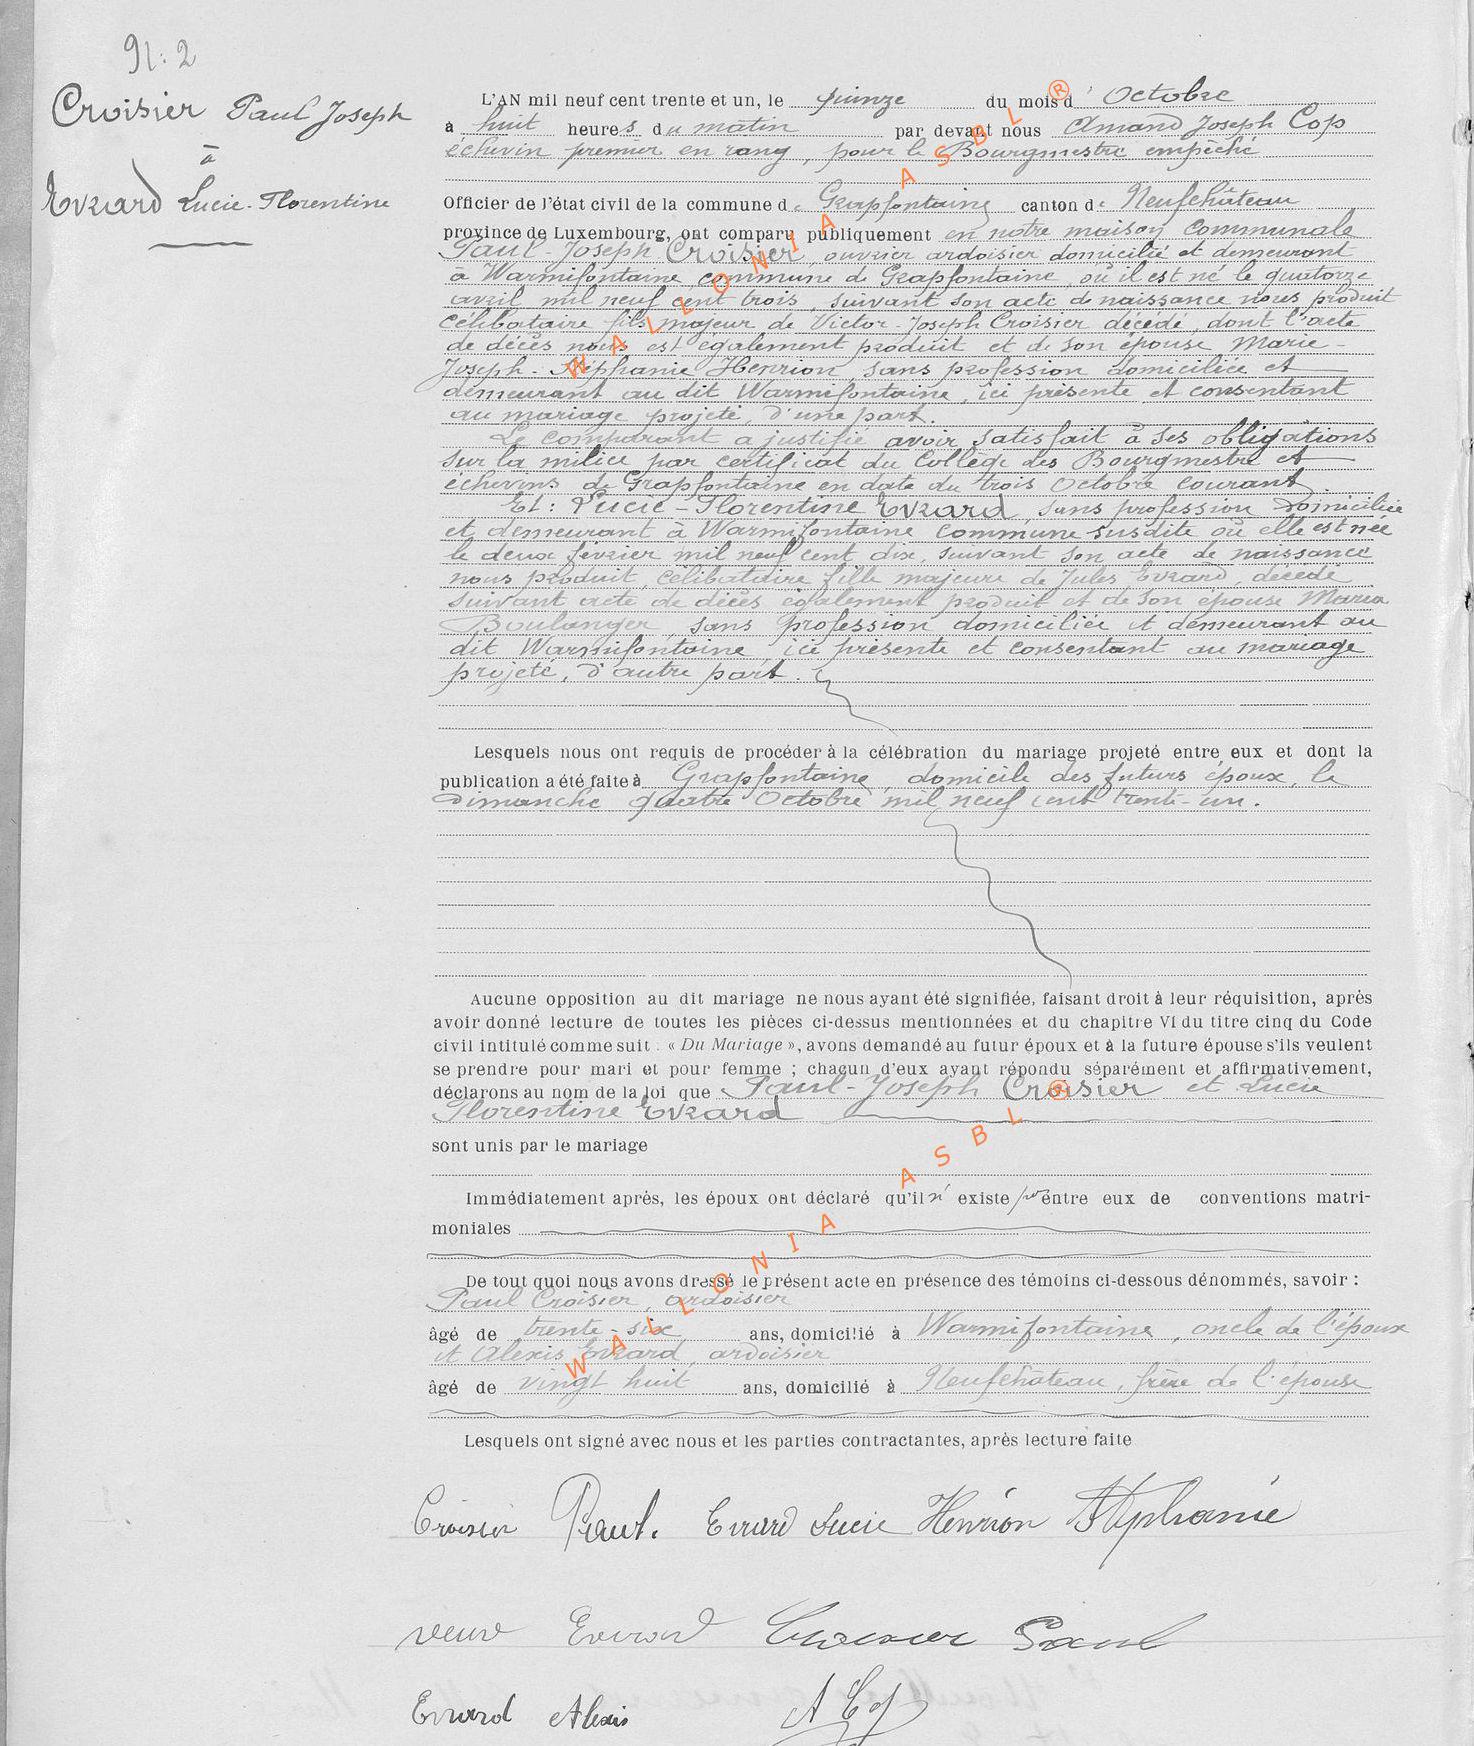 Nº: 2
Croisier Paul Joseph
à
Evrard Lucie-Florentine
L'AN mil neuf cent trente et un, le quinze du mois d' Octobre
à huit heures du matin par devant nous Amand Joseph Cop
échevin premier en rang, pour le Bourgmestre empêché
Officier de l'état civil de la commune de Grapfontaine canton de Neufchâteau
province de Luxembourg, ont comparu publiquement en notre maison Communale
Paul-Joseph Croisier, ouvrier ardoisier domicilié et demeurant
à Warmifontaine commune de Grapfontaine, où il est né le quatorze
avril mil neuf cent trois, suivant son acte de naissance nous produit
célibataire fils majeur de Victor-Joseph Croisier décédé, dont l'acte
de décès nous est également produit et de son épouse Marie-
Joseph-Stéphanie Henrion sans profession domiciliée et
demeurant au dit Warmifontaine, ici présente et consentant
au mariage projeté, d'une part.
Le comparant a justifié avoir satisfait à ses obligations
sur la milice par certificat du Collège des Bourgmestre et
échevins de Grapfontaine en date du trois Octobre courant.
Et: Lucie-Florentine Evrard, sans profession domiciliée
et demeurant à Warmifontaine commune susdite où elle est née
le deux février mil neuf cent dix, suivant son acte de naissance
nous produit, célibataire fille majeure de Jules Evrard, décédé
suivant acte de décès également produit et de son épouse Maria
Boulanger, sans profession domiciliée et demeurant au
dit Warmifontaine, ici présente et consentant au mariage
projeté, d'autre part.
Lesquels nous ont requis de procéder à la célébration du mariage projeté entre eux et dont la
publication a été faite à Grapfontaine, domicile des futurs époux, le
Dimanche quatre Octobre mil neuf cent trente-un.
Aucune opposition au dit mariage ne nous ayant été signifiée, faisant droit à leur réquisition, après
avoir donné lecture de toutes les pièces ci-dessus mentionnées et du chapitre VI du titre cinq du Code
civil intitulé comme suit : « Du Mariage », avons demandé au futur époux et à la future épouse s'ils veulent
se prendre pour mari et pour femme ; chacun d'eux ayant répondu séparément et affirmativement,
déclarons au nom de la loi que Paul-Joseph Croisier et Lucie
Florentine Evrard
sont unis par le mariage
Immédiatement après, les époux ont déclaré qu'il n'existe pas entre eux de conventions matri-
moniales
De tout quoi nous avons dressé le présent acte en présence des témoins ci-dessous dénommés, savoir :
Paul Croisier, ardoisier
âgé de trente-six ans, domicilié à Warmifontaine, oncle de l'époux
et Alexis Evrard, ardoisier
âgé de vingt huit ans, domicilié à Neufchâteau, frère de l'épouse
Lesquels ont signé avec nous et les parties contractantes, après lecture faite
Croisier Paul. Evrard Lucie Henrion Stéphanie
veuve Evrard Croisier Paul
Evrard Alexis A Cop
WALLONIA ASBL ®
WALLONIA ASBL ®